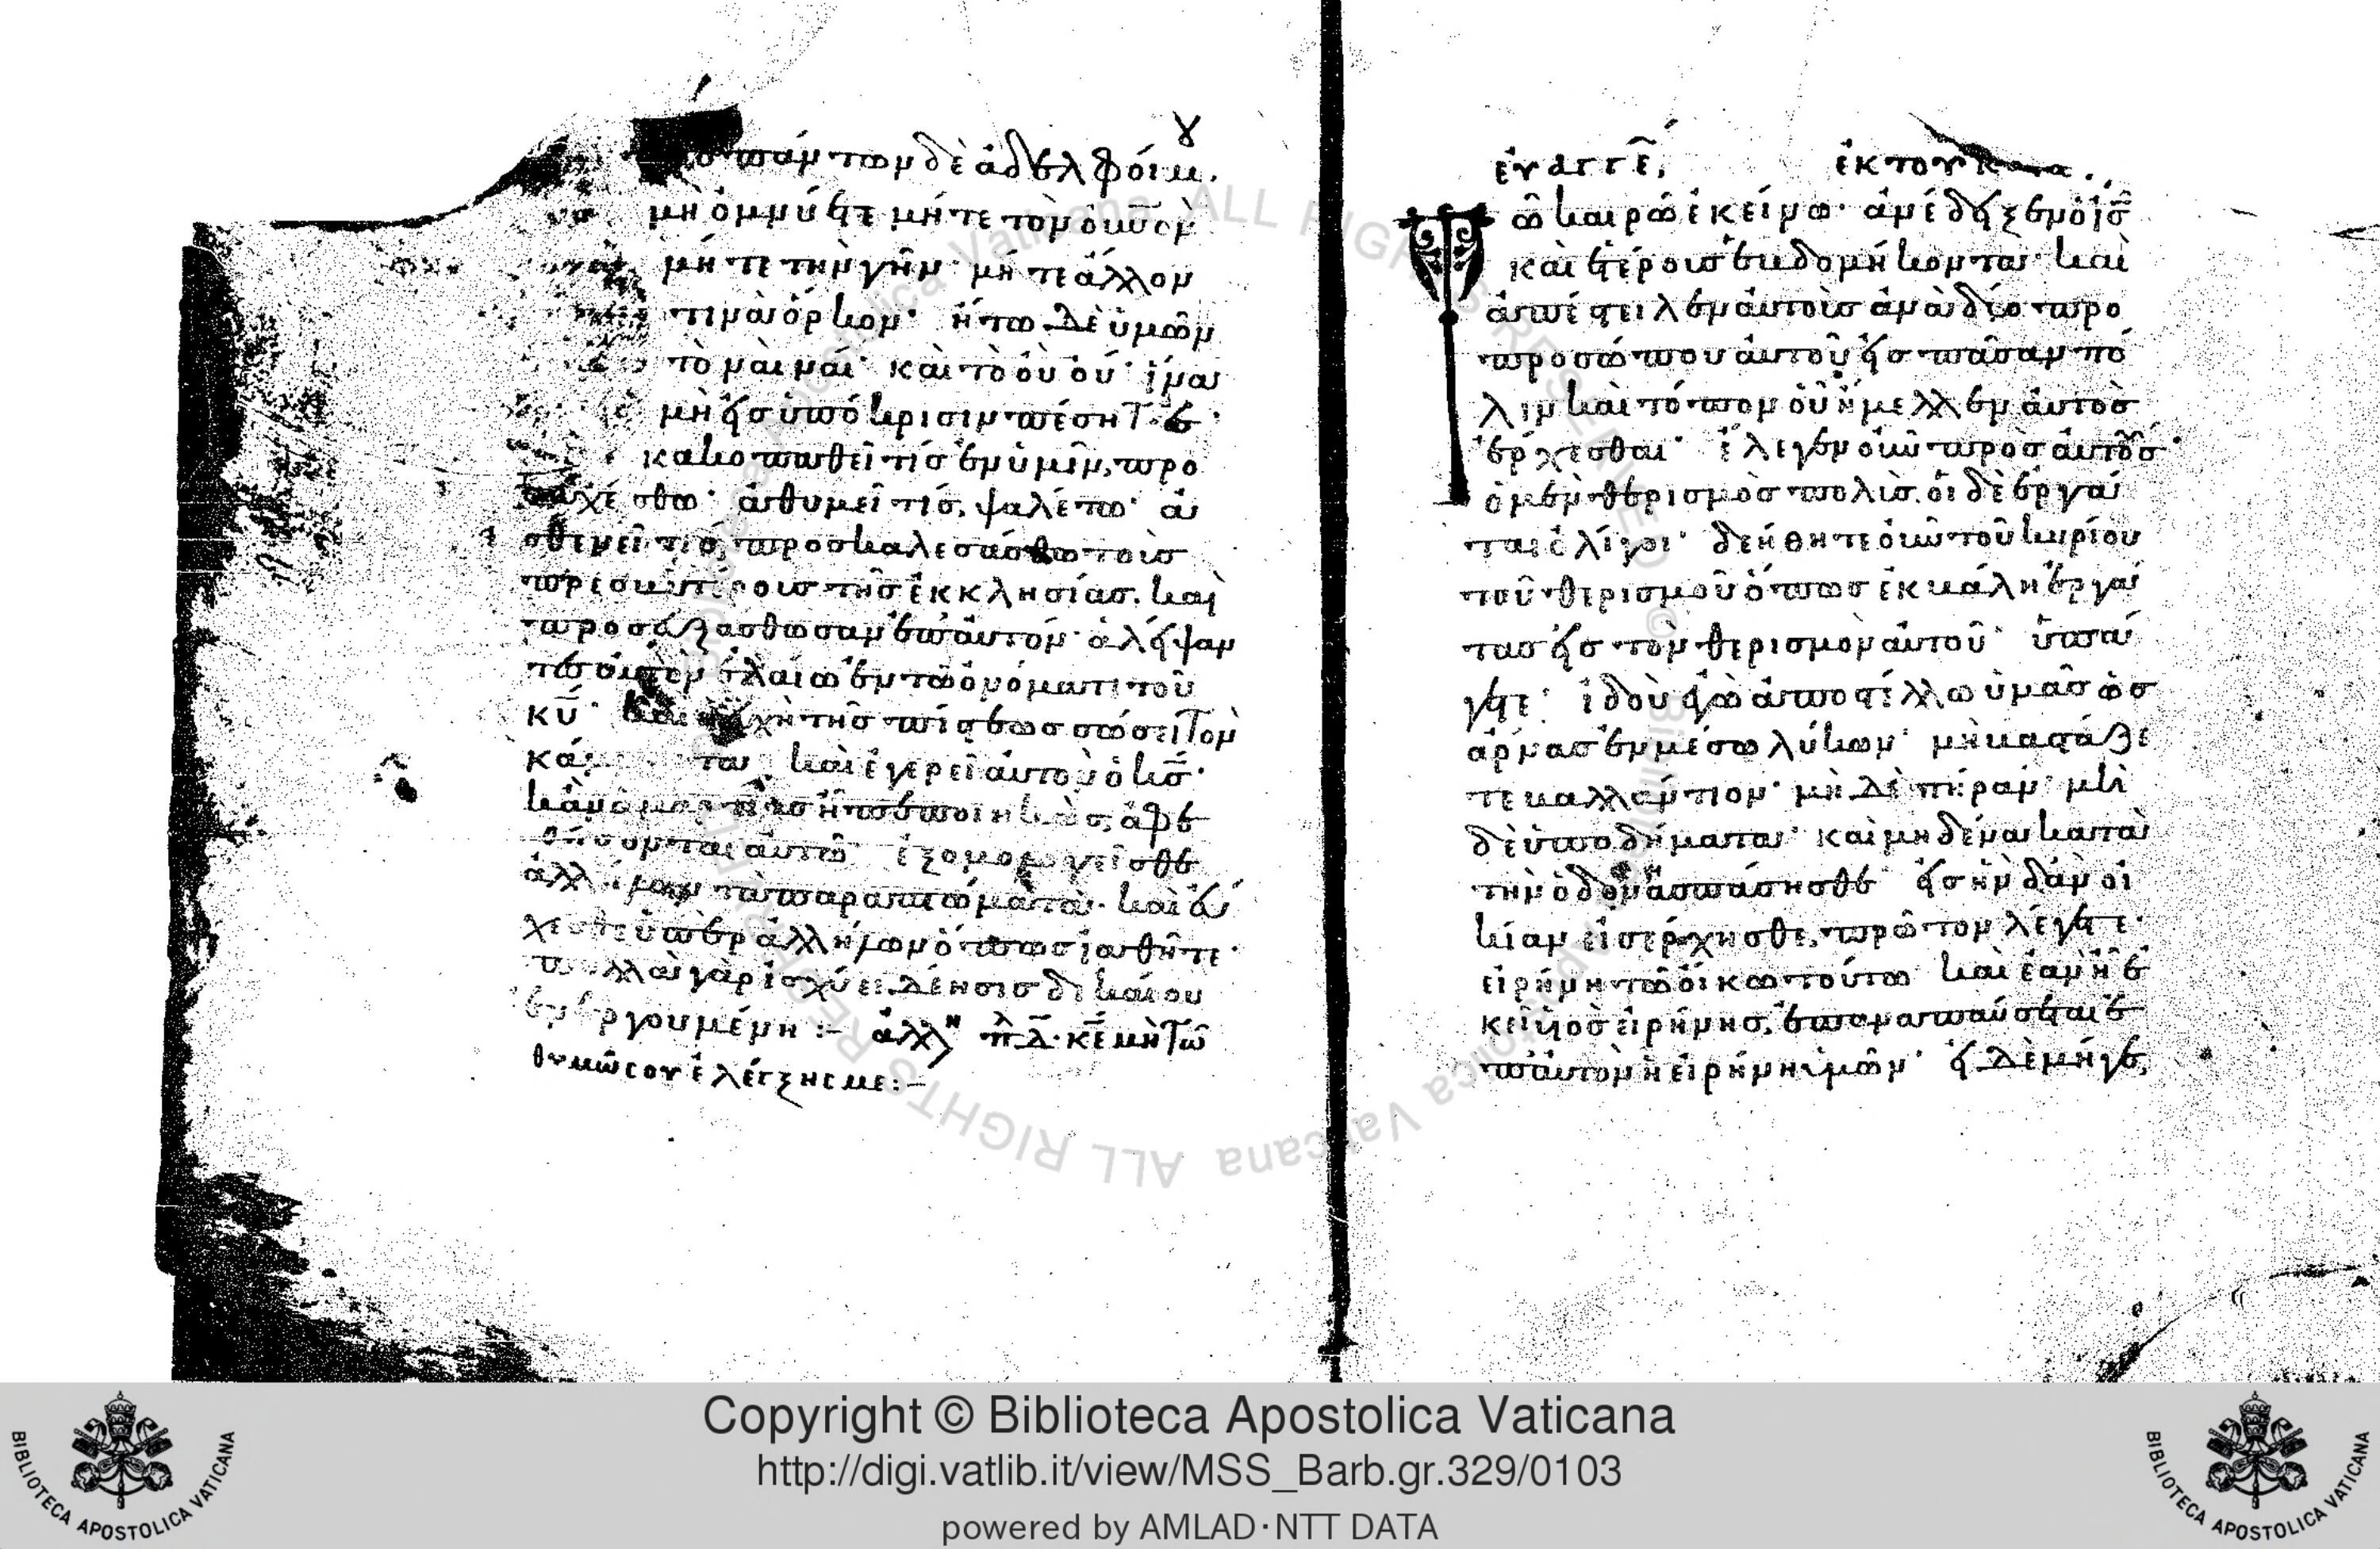 πάντων δὲ ἀδελφοί μου.
μὴ ὀμνύετε μήτε τὸν οὐνὸν
μήτε τὴν γῆν· μήτε ἄλλον
τινὰ ὅρκον· ἤτω δὲ ὑμῶν
τὸ ναὶ ναί· καὶ τὸ οὐ οὐ· ἵνα
μὴ εἰς ὑπόκρισιν πέσητε·
κακοπαθεῖ τίς ἐν ὑμῖν, προ
χέσθω· ἀθυμεῖ τίς, ψαλέτω· ἀ
σθενεῖ τίς, προσκαλεσάσθω τοὺς
πρεσβυτέρους τῆς ἐκκλησίας. καὶ
προσευξάσθωσαν ἐπ' αὐτόν· ἀλείψαν
τες αὐτὸν ἐλαίω ἐν τῶ ὀνόματι τοῦ
κῦ· καὶ εὐχὴ τῆς πίστεως σώσει τὸν
κά τα, καὶ ἐγερεῖ αὐτὸν ὁ κς·
κἂν ἁμαρτίας ἦ πεποιηκὼς, ἀφε
θήσονται αὐτῶ· ἐξομολογεῖσθε
ἀλλήλοις τὰ παραπτώματα· καὶ εὔ
χεσθε ὑπὲρ ἀλλήλων ὅπως ἰαθῆτε·
πολλὰ γὰρ ἰσχύει δέησις δικαίου
ἐνεργουμένη :– ἀλλη πλ δ· κε μὴ τῶ
θυμῶ σου ἐλέγξης με :–
εὐαγγε, ἐκ τοῦ κατὰ
Τῶ καιρῶ ἐκείνω· ἀνέδειξεν ὁ ις
καὶ ἑτέρους ἑβδομήκοντα· καὶ
ἀπέστειλεν αὐτοὺς ἀνὰ δύο πρὸ
προσώπου αὐτοῦ εἰς πᾶσαν πό
λιν καὶ τόπον οὗ ἤμελλεν αὐτὸς
ἔρχεσθαι· ἔλεγεν οὖν πρὸς αὐτούς·
ὁ μὲν θερισμὸς πολὺς. οἱ δὲ ἐργά
ται ὀλίγοι· δεήθητε οὖν τοῦ κυρίου
τοῦ θερισμοῦ ὅπως ἐκβάλη ἐργά
τας εἰς τὸν θερισμὸν αὐτοῦ· ὑπά
γετε· ἰδοὺ ἐγὼ ἀποστέλλω ὑμᾶς ὡς
ἄρνας ἐν μέσω λύκων· μὴ βαστάζε
τε βαλλάντιον· μὴ δὲ πήραν· μὴ
δὲ ὑποδήματα· καὶ μηδένα κατὰ
τὴν ὁδὸν ἀσπάσησθε· εἰς ἣν δ' ἂν οἰ
κίαν εἰσέρχησθε, πρῶτον λέγετε·
εἰρήνη τῶ οἴκω τούτω· καὶ ἐὰν ἦ ἐ
κεῖ υἱὸς εἰρήνης, ἐπαναπαύσεται ἐ
π' αὐτὸν ἡ εἰρήνη ὑμῶν· εἰ δὲ μήγε,
Copyright © Biblioteca Apostolica Vaticana
http://digi.vatlib.it/view/MSS_Barb.gr.329/0103
powered by AMLAD·NTT DATA
BIBLIOTECA APOSTOLICA VATICANA
BIBLIOTECA APOSTOLICA VATICANA